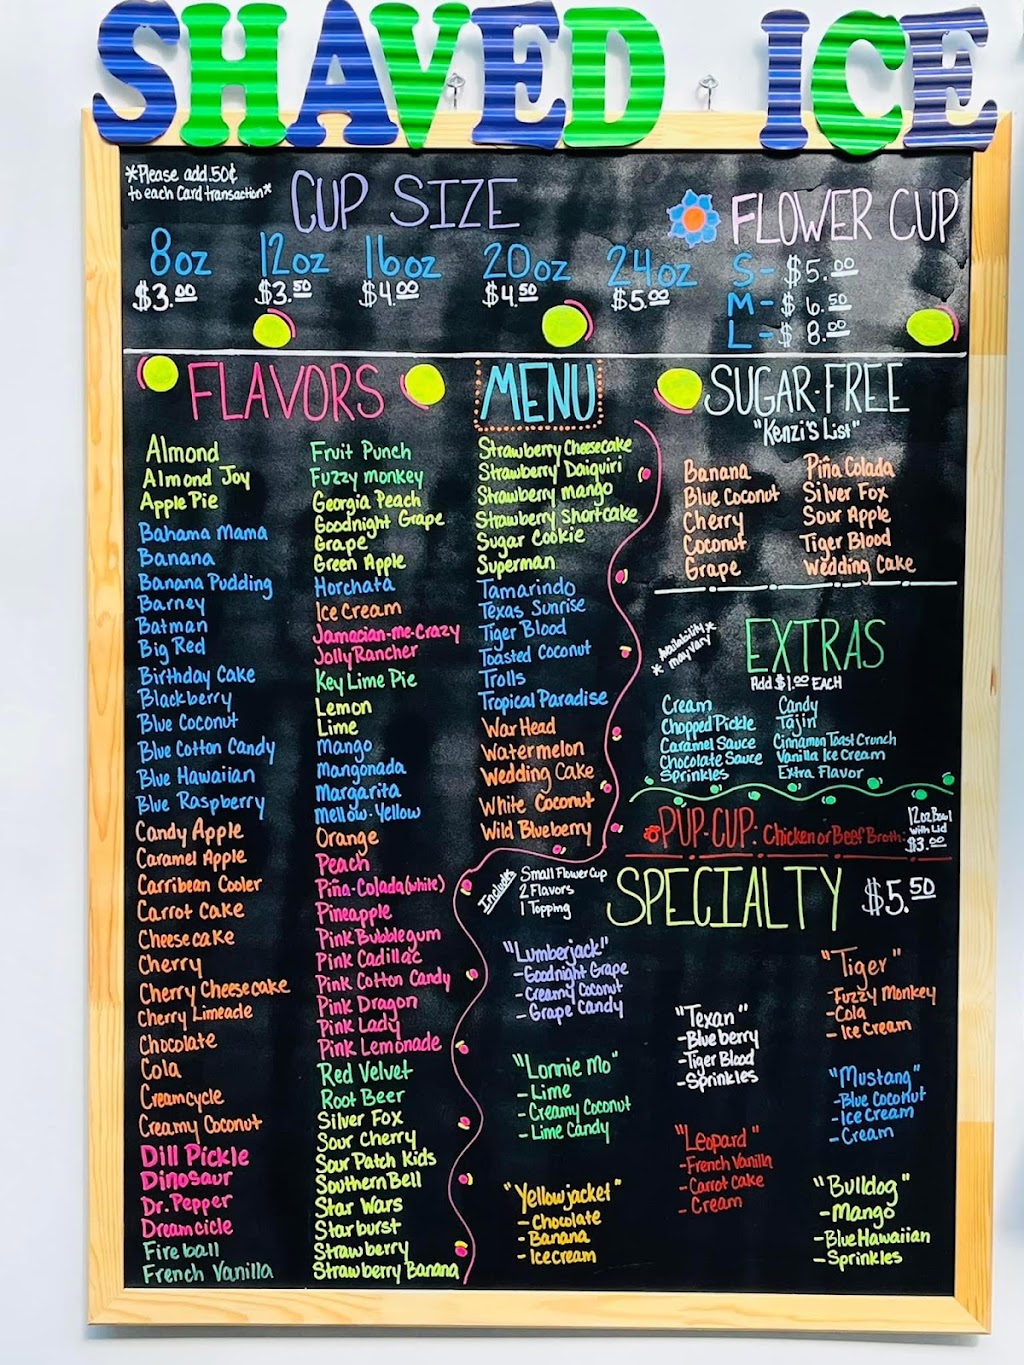 SHAVED ICE
*Please add .50¢
to each Card transaction*
CUP SIZE
8oz 12oz 16oz 20oz 24oz
$3.00 $3.50 $4.00 $4.50 $5.00
FLOWER CUP
S - $5.00
M - $6.50
L - $8.00
FLAVORS
MENU
Almond
Almond Joy
Apple Pie
Bahama Mama
Banana
Banana Pudding
Barney
Batman
Big Red
Birthday Cake
Blackberry
Blue Coconut
Blue Cotton Candy
Blue Hawaiian
Blue Raspberry
Candy Apple
Caramel Apple
Carribean Cooler
Carrot Cake
Cheesecake
Cherry
Cherry Cheesecake
Cherry Limeade
Chocolate
Cola
Creamcycle
Creamy Coconut
Dill Pickle
Dinosaur
Dr. Pepper
Dreamcicle
Fireball
French Vanilla
Fruit Punch
Fuzzy monkey
Georgia Peach
Goodnight Grape
Grape
Green Apple
Horchata
Ice Cream
Jamacian-me-Crazy
Jolly Rancher
Key Lime Pie
Lemon
Lime
Mango
Mangonada
Margarita
Mellow-Yellow
Orange
Peach
Piña-Colada (white)
Pineapple
Pink Bubblegum
Pink Cadillac
Pink Cotton Candy
Pink Dragon
Pink Lady
Pink Lemonade
Red Velvet
Root Beer
Silver Fox
Sour Cherry
Sour Patch Kids
Southern Bell
Star Wars
Starburst
Strawberry
Strawberry Banana
Strawberry Cheesecake
Strawberry Daiquiri
Strawberry mango
Strawberry Shortcake
Sugar Cookie
Superman
Tamarindo
Texas Sunrise
Tiger Blood
Toasted Coconut
Trolls
Tropical Paradise
War Head
Watermelon
Wedding Cake
White Coconut
Wild Blueberry
SUGAR-FREE
"Kenzi's List"
Banana
Blue Coconut
Cherry
Coconut
Grape
Piña Colada
Silver Fox
Sour Apple
Tiger Blood
Wedding Cake
*Availability*
*may vary
EXTRAS
Add $1.00 EACH
Cream
Chopped Pickle
Caramel Sauce
Chocolate Sauce
Sprinkles
Candy
Tajin
Cinnamon Toast Crunch
Vanilla Ice Cream
Extra Flavor
PUP-CUP: Chicken or Beef Broth:
12oz Bowl
with Lid
$3.00
Includes
Small Flower Cup
2 Flavors
1 Topping
SPECIALTY $5.50
"Lumberjack"
- Goodnight Grape
- Creamy Coconut
- Grape Candy
"Lonnie Mo"
- Lime
- Creamy Coconut
- Lime Candy
"Yellowjacket"
- Chocolate
- Banana
- Icecream
"Texan"
- Blueberry
- Tiger Blood
- Sprinkles
"Leopard"
- French Vanilla
- Carrot Cake
- Cream
"Tiger"
- Fuzzy Monkey
- Cola
- Ice Cream
"Mustang"
- Blue Coconut
- Ice Cream
- Cream
"Bulldog"
- Mango
- Blue Hawaiian
- Sprinkles